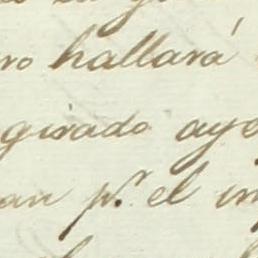 ro hallará
girado aye
an p.r el in